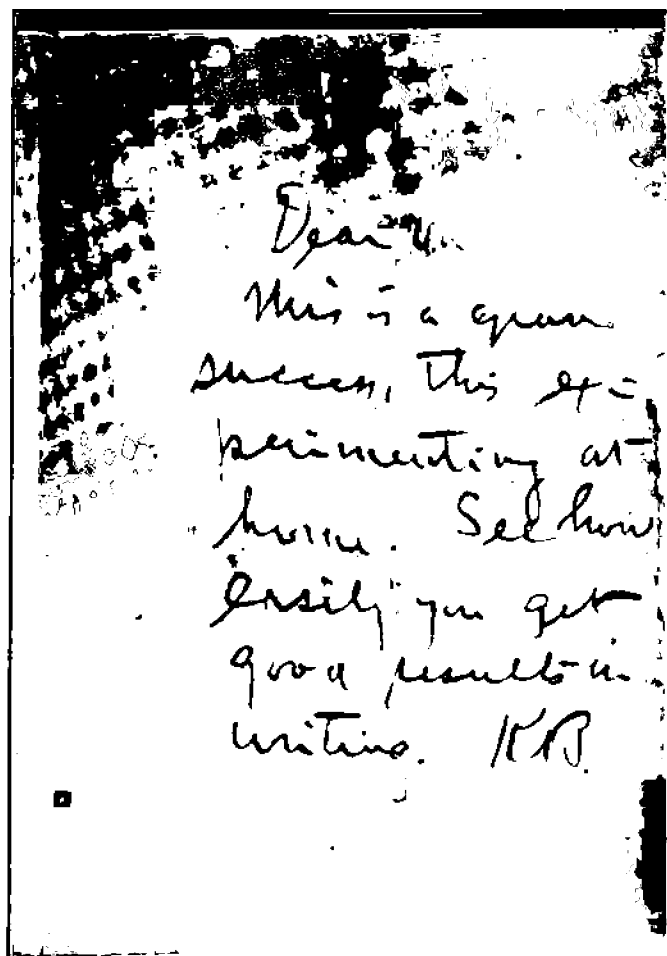 Dear
This is a
success, this ex-
perimenting at
home. See how
easily you get
good results in
writing. KB.